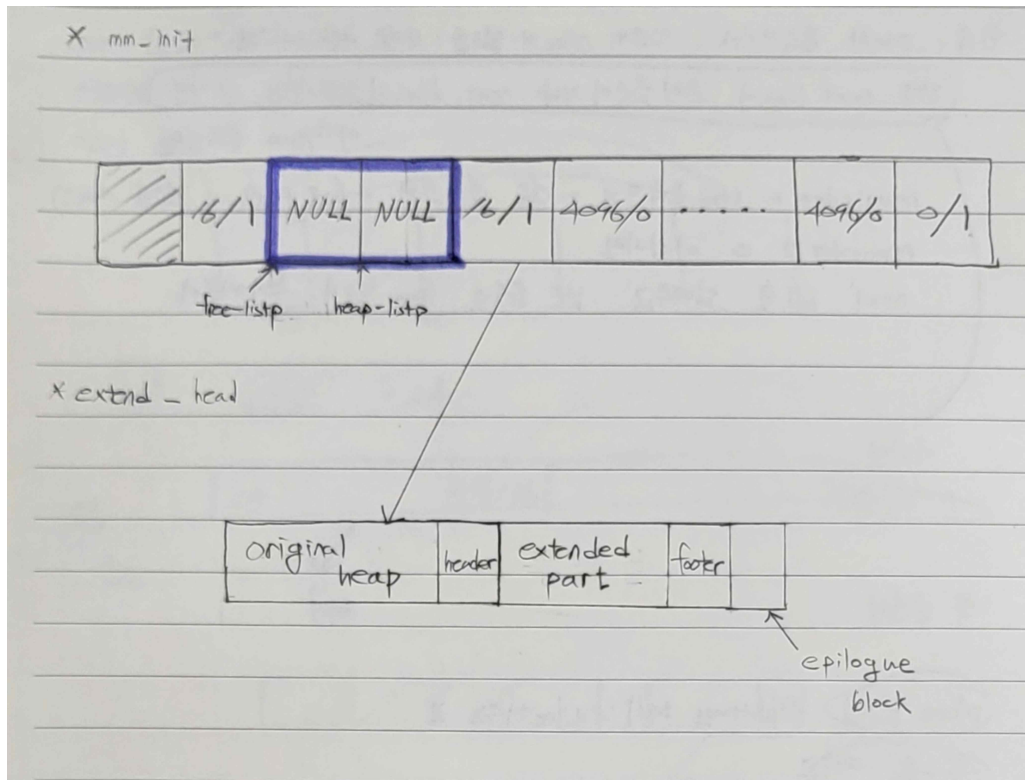 * mm_init
16/1 NULL NULL 16/1 4096/0 ..... 4096/0 0/1
free-listp heap-listp
* extend_head
original heap
header
extended part
footer
epilogue
block